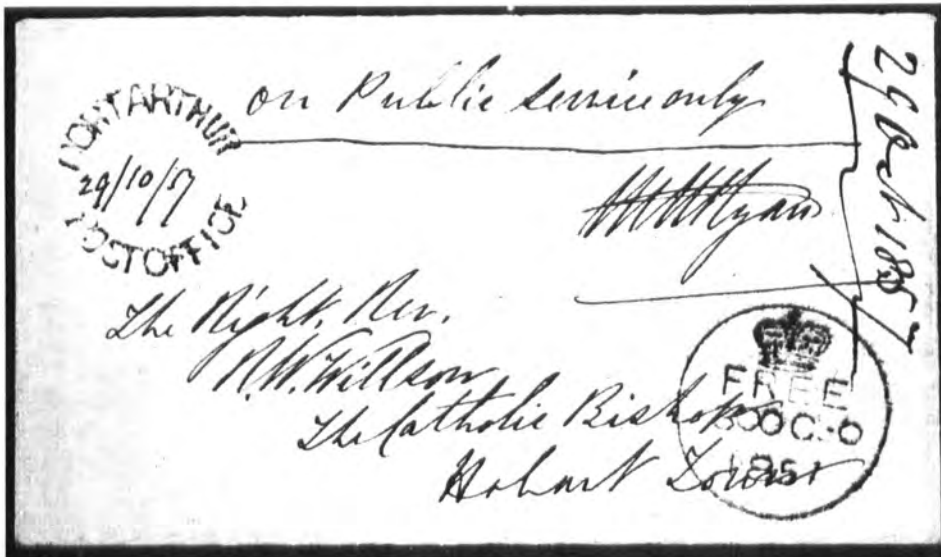 PORT ARTHUR
29/10/57
POST OFFICE
on Public Service only
29 Oct. 1857
The Right. Rev.
R.W. Willson
The Catholic Bishop
Hobart Town
FREE
30 OC